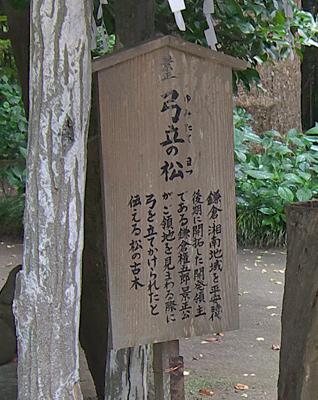 景正
弓立の松
ゆみたて まつ
鎌倉・湘南地域を平安時代
後期に開拓した開発領主
である鎌倉権五郎景正公
がご領地を見まわる際に
弓を立てかけられたと
伝える松の古木